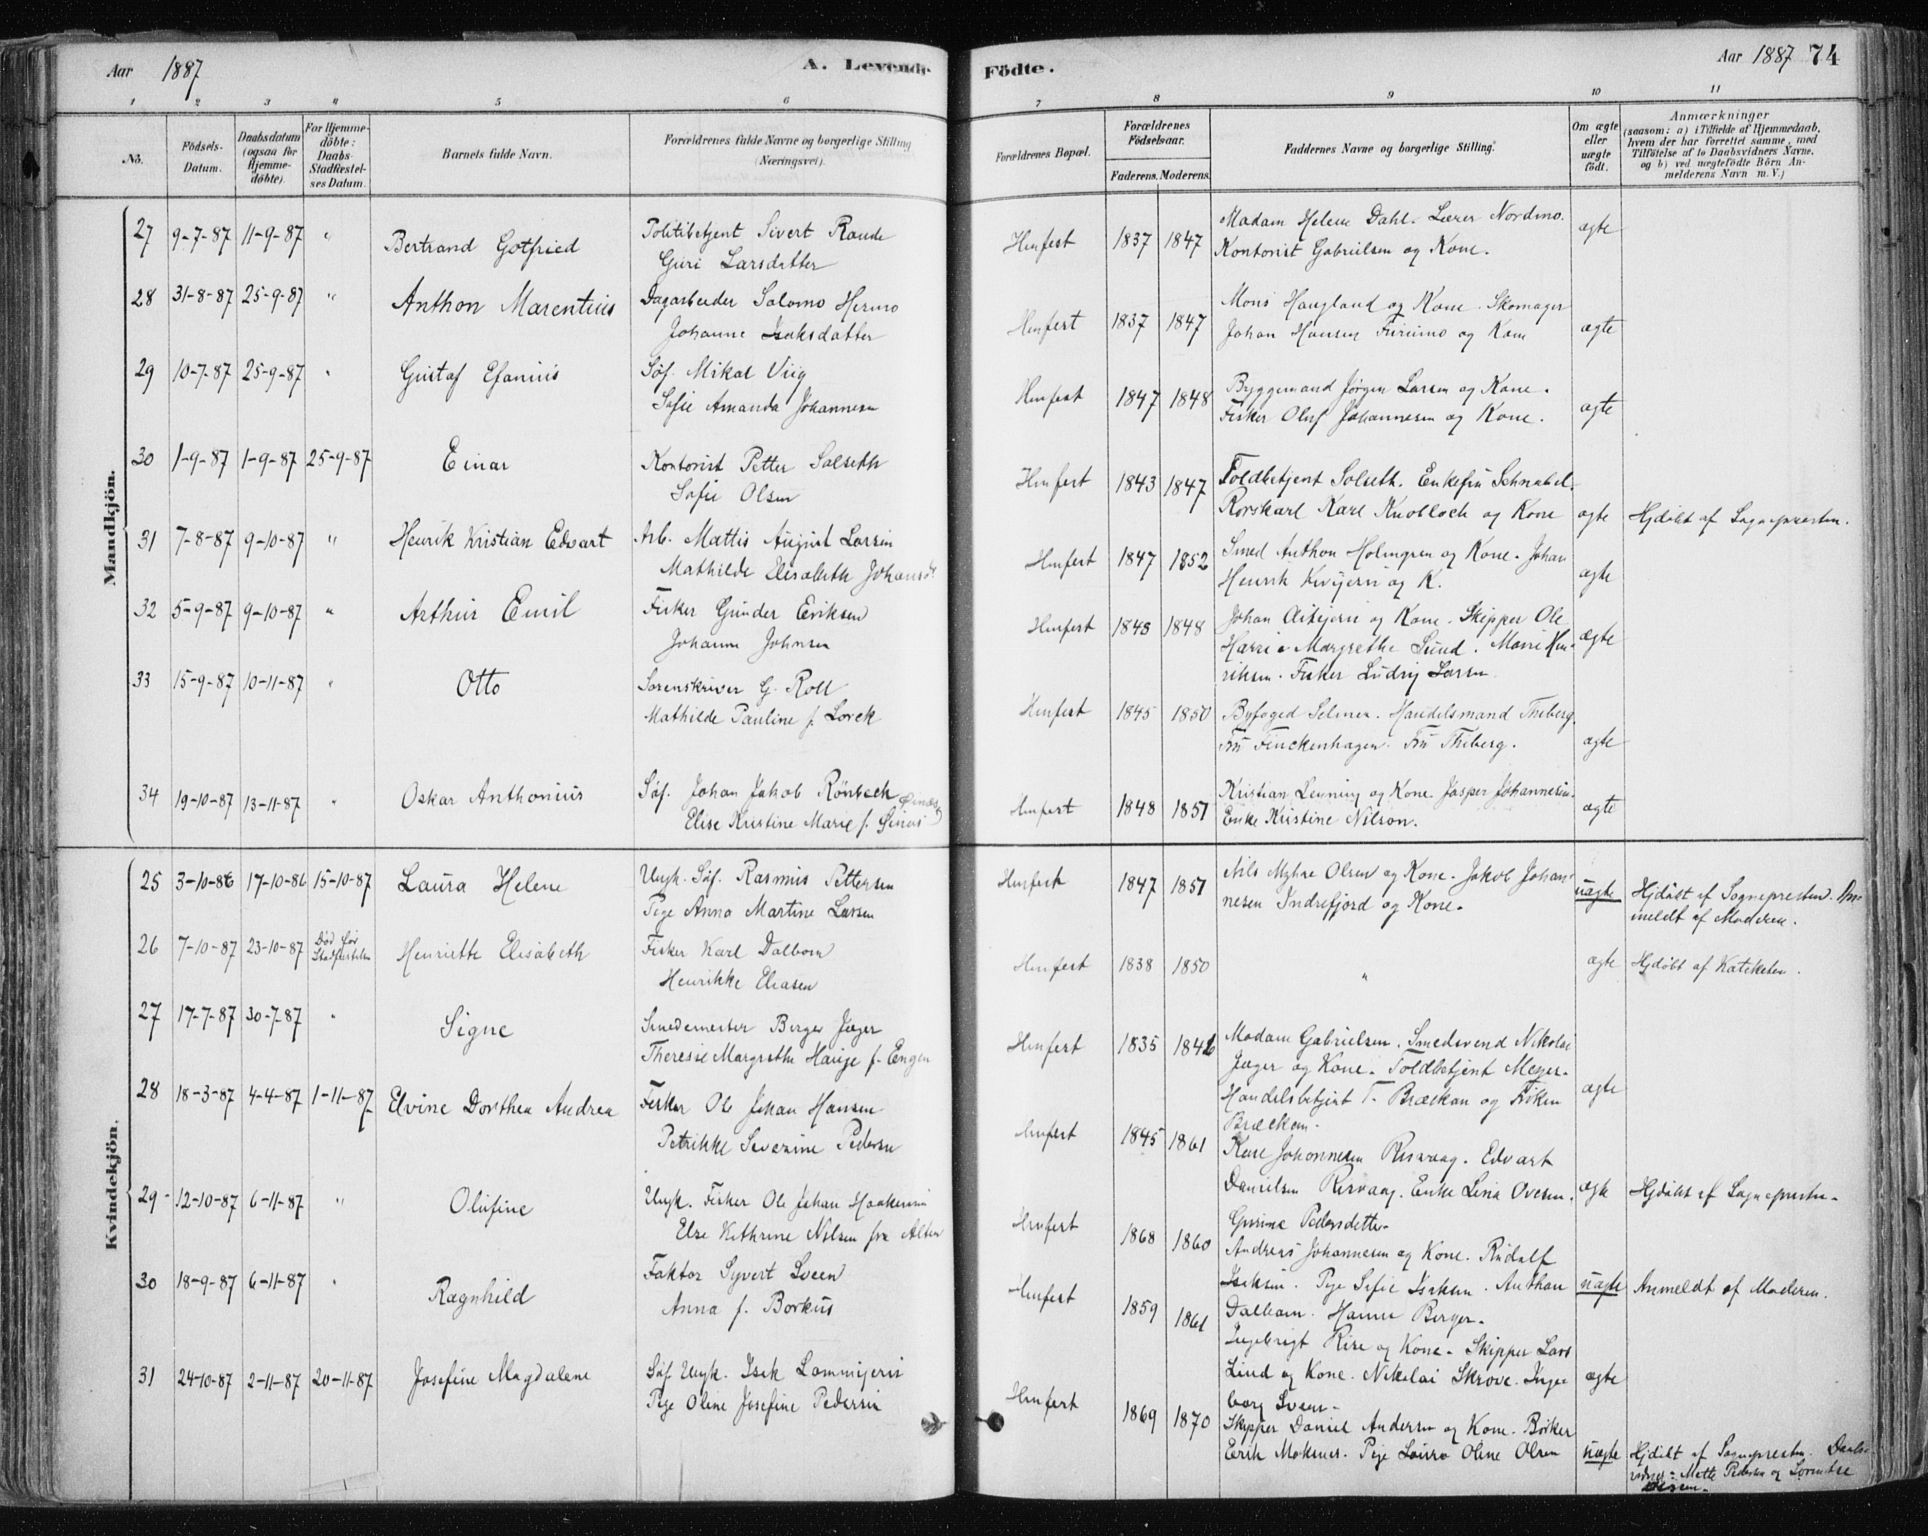 Aar 1887
A. Levende Födte.
Aar 1887 74
1 2 3 4 5 6 7 8 9 10 11
No.
Födsels-Datum.
Daabsdatum (ogsaa for Hjemme-döbte).
For Hjemme-döbte: Daabs-Stadfæstel-ses Datum.
Barnets fulde Navn.
Forældrenes fulde Navne og borgerlige Stilling (Næringsvei).
Forældrenes Bopæl.
Forældrenes Födselsaar.
Faderens. Moderens.
Faddernes Navne og borgerlige Stilling.
Om ægte eller uægte födt.
Anmærkninger
(saasom: a) i Tilfælde af Hjemmedaab,
hvem der har forrettet samme, med
Tilföielse af to Daabsvidners Navne,
og b) ved uægtefödte Börn An-
melderens Navn m. V.)
Mandkjön.
27 9-7-87 11-9-87 " Bertrand Gotfried Politibetjent Sivert Rande
Guri Larsdatter
Hmfest 1837 1847 Madam Helene Dahl. Lærer Nordmo.
Kontorist Gabrielsen og Kone. ægte
28 31-8-87 25-9-87 " Anthon Marentius Dagarbeider Salomo Hermo
Johanne Isaksdatter
Hmfest 1837 1847 Mons Haugland og Kone. Skomager
Johan Hansen Furumo og Kone ægte
29 10-7-87 25-9-87 " Gustaf Efanius Søf. Mikal Viig
Sofie Amanda Johannesen
Hmfest 1847 1848 Byggemand Jørgen Larsen og Kone.
Fisker Oluf Johannesen og Kone. ægte
30 1-9-87 1-9-87 25-9-87 Einar Kontorist Petter Solseth
Sofie Olsen
Hmfest 1843 1847 Toldbetjent Solseth. Enkefru Schnabel.
Rorskarl Karl Knobloch og Kone ægte Hjdøbt af Sognepresten.
31 7-8-87 9-10-87 " Henrik Kristian Edvart Arb. Mattis August Larsen
Mathilde Elisabeth Johansdr
Hmfest 1847 1852 Smed Anthon Holmgren og Kone. Johan
Henrik og K. ægte
32 5-9-87 9-10-87 " Arthur Emil Fisker Gunder Eriksen
Johanna Johnsen
Hmfest 1845 1848 Johan og Kone. Skipper Ole
Margrethe Lund. Marie Hen-
riksen. Fisker Ludvig Larsen ægte
33 15-9-87 10-11-87 " Otto Sorenskriver G. Roll
Mathilde Pauline f. Lorck
Hmfest 1845 1850 Byfoged Selmer. Handelsmand Theberg.
Fru Finckenhagen. Fru Theberg. ægte
34 19-10-87 13-11-87 " Oskar Anthonius Søf. Johan Jakob Rönbeck
Elise Kristine Marie f.
Hmfest 1848 1851 Kristian Lenning og Kone. Jasper Johannesen.
Enke Kristine Nilson. ægte
Kvindekjön.
25 3-10-86 17-10-86 15-10-87 Laura Helene Ungk. Søf. Rasmus Pettersen
Pige Anna Martine Larsen
Hmfest 1847 1851 Nils Myhre Olsen og Kone. Jakob Johan-
nesen Indrefjord og Kone. uægte Hjdøbt af Sognepresten. An-
meldt af Moderen.
26 7-10-87 23-10-87 Død før Stadfæstelsen Henriette Elisabeth Fisker Karl Dalbom
Henrikke Eliasen
Hmfest 1838 1850 " ægte Hjdøbt af Kateketen.
27 17-7-87 30-7-87 " Signe Smedemester Birger Jæger
Theresie Margrethe Hauge f. Engen
Hmfest 1835 1846 Madam Gabrielsen. Smedsvend Nikolai
Jæger og Kone. Toldbetjent Meyer.
Handelsbetjent T. Bræckan og Frøken
Bræckan. ægte
28 18-3-87 4-4-87 1-11-87 Elvine Dorthea Andrea Fisker Ole Johan Hansen
Petrikke Severine Pedersen
Hmfest 1845 1861 Karl Johannesen Risvaag. Edvart
Danielsen Risvaag. Enke Lina Ovesen.
Gurine Pedersdatter ægte Hjdøbt af Sognepresten.
29 12-10-87 6-11-87 " Olufine Ungk. Fisker Ole Johan Haakensen
Else Kathrine Nilsen fra Alten
Hmfest 1868 1860 Andreas Johannesen og Kone. Rudolf
Isaksen. Pige Sofie Isaksen. Anthon
Dalbom. Hanna Berger. uægte Anmeldt af Moderen.
30 18-9-87 6-11-87 " Ragnhild Faktor Syvert Sveen
Anna f. Borkus
Hmfest 1859 1861 Ingebrigt Rise og Kone. Skipper Lars
Lind og Kone. Nikolai Skrove. Inge-
borg Sveen. ægte
31 24-10-87 2-11-87 20-11-87 Josefine Magdalene Søf. Ungk. Isak
Pige Oline Josefine Pedersen
Hmfest 1869 1870 Skipper Daniel Andersen og Kone. Bøkker
Erik Moksnes. Pige Laura Oline Olsen uægte Hjdøbt af Sognepresten. Daabs-
vidner: Mette Pedersen og